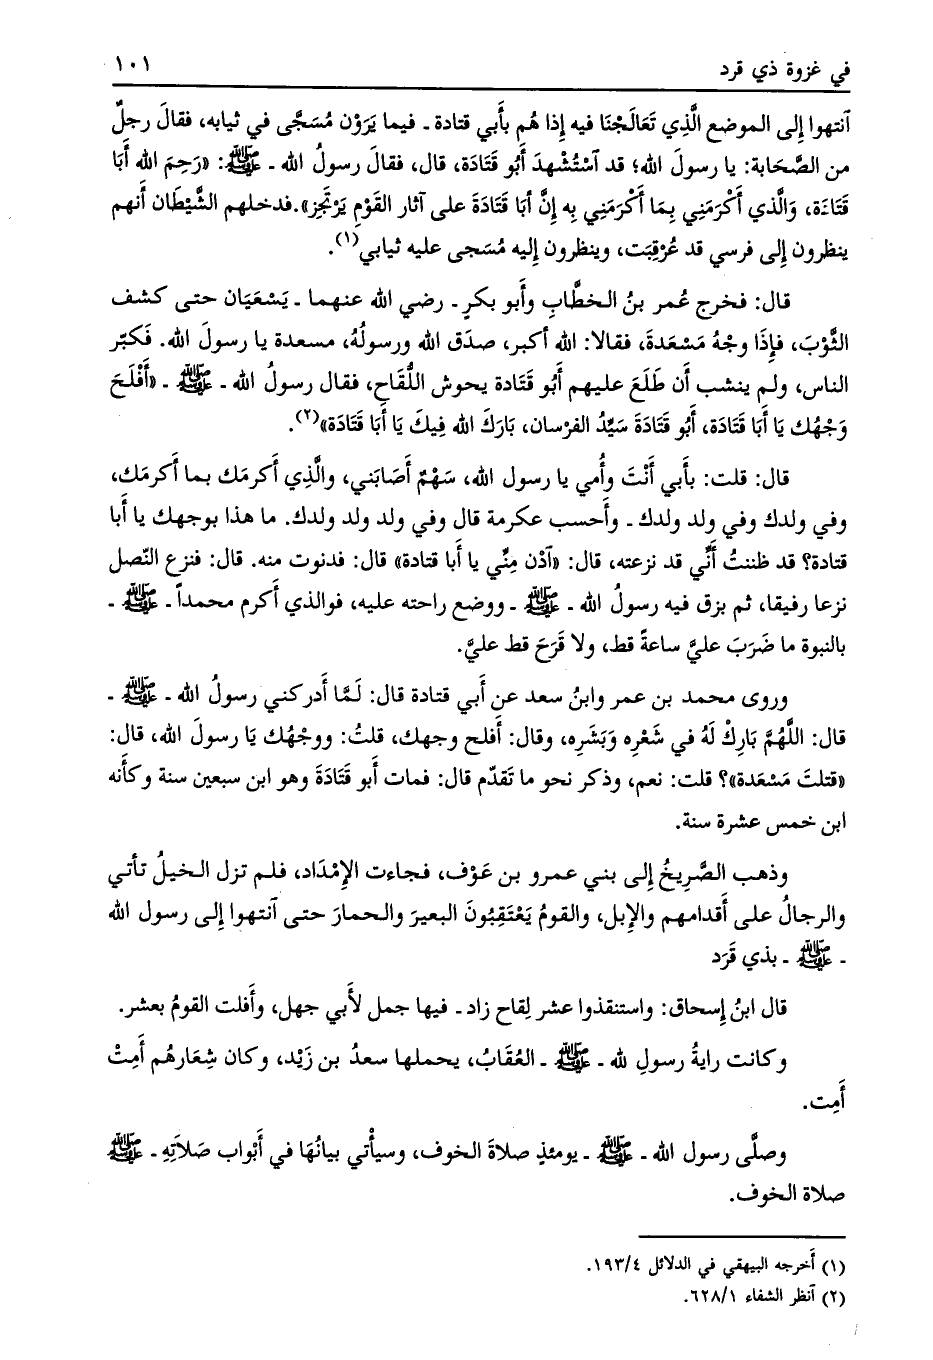 في غزوة ذي قرد
١٠١
آنتهوا إلى الموضع الَّذِي تَعَالَجْنَا فيه إذا هُم بأَبي قتادة ـ فيما يَرَوْن مُسَجَّى في ثيابه، فقالَ رجلٌ
من الصَّحَابة: يا رسولَ الله؛ قد آسْتُشْهِدَ أَبُو قَتَادَة، قال، فقالَ رسولُ الله ـ ﷺ: «رَحِمَ الله أَبَا
قَتَادَة، وَالَّذي أَكْرَمَنِي بِمَا أَكْرَمَنِي بِه إِنَّ أَبَا قَتَادَةَ على آثار القَوْمِ يَرْتَجِز».فدخلهم الشَّيْطَان أَنهم
ينظرون إلى فرسي قد عُرْقِبَت، وينظرون إليه مُسَجى عليه ثيابي(١).
قال: فخرج عُمر بنُ الخطَّابِ وأَبو بكرٍ ـ رضي الله عنهما ـ يَسْعَيَان حتى كشف
الثَّوْبَ، فإِذَا وجْهُ مَسْعَدةَ، فقالا: الله أكبر، صدَق الله ورسولُهُ، مسعدة يا رسولَ الله. فَكبّر
الناس، ولم ينشب أَن طَلَعَ عليهم أَبُو قَتَادة يحوش اللِّقَاح، فقال رسولُ الله ـ ﷺ ـ «أَفْلَحَ
وَجْهُك يَا أَبَا قَتَادَة، أَبُو قَتَادَةَ سَيِّدُ الفرْسان، بَارَكَ الله فِيكَ يَا أَبَا قَتَادَة»(٢).
قال: قلت: بأَبي أَنْتَ وأُمي يا رسول الله، سَهْمٌ أَصَابَني، والَّذِي أَكرمَك بما أَكرمَك،
وفي ولدك وفي ولد ولدك ـ وأَحسب عكرمة قال وفي ولد ولد ولدك. ما هذا بوجهك يا أَبا
قتادة؟ قد ظننتُ أَنِّي قد نزعته، قال: «آدْن مِنِّي يا أَبا قتادة» قال: فدنوت منه. قال: فنزع النّصل
نزعا رفيقا، ثم بزق فيه رسولُ الله ـ ﷺ ـ ووضع راحته عليه، فوالذي أَكرم محمداً ـ ﷺ ـ
بالنبوة ما ضَرَبَ عليَّ ساعةً قط، ولا قَرَحَ قط عليَّ.
وروى محمد بن عمر وابنُ سعد عن أَبي قتادة قال: لَمَّا أَدركني رسولُ الله ـ ﷺ ـ
قال: اللَّهُمَّ بَارِكْ لَهُ في شَعْرِه وَبَشَرِه، وقال: أَفلح وجهك، قلتُ: ووجْهُك يَا رسولَ الله، قال:
«قتلتَ مَسْعَدة»؟ قلت: نعم، وذكر نحو ما تَقدّم قال: فمات أَبو قَتَادَةَ وهو ابن سبعين سنة وكأَنه
ابن خمس عشرة سنة.
وذهب الصَّرِيخُ إلى بني عمرو بن عَوْف، فجاءت الإمْدَاد، فلم تزل الخيلُ تأتي
والرجالُ على أَقدامهم والإبل، والقومُ يَعْتَقِبُونَ البعيرَ والحمارَ حتى آنتهوا إلى رسول الله
ـ ﷺ ـ بذي قَرَد
قال ابنُ إسحاق: واستنقذوا عشر لِقاح زاد ـ فيها جمل لأَبي جهل، وأَفلت القومُ بعشر.
وكانت رايةُ رسولِ لله ـ ﷺ ـ العُقَابُ، يحملها سعدُ بن زَيْد، وكان شِعَارهُم أَمِتْ
أَمِت.
وصلَّى رسول الله ـ ﷺ ـ يومئذٍ صلاةَ الخوف، وسيأْتي بيانُهَا في أَبْواب صَلَاَتِهِ ـ ﷺ
صلاة الخوف.
(١) أخرجه البيهقي في الدلائل ٤/ ١٩٣.
(٢) آنظر الشفاء ١/ ٦٢٨.